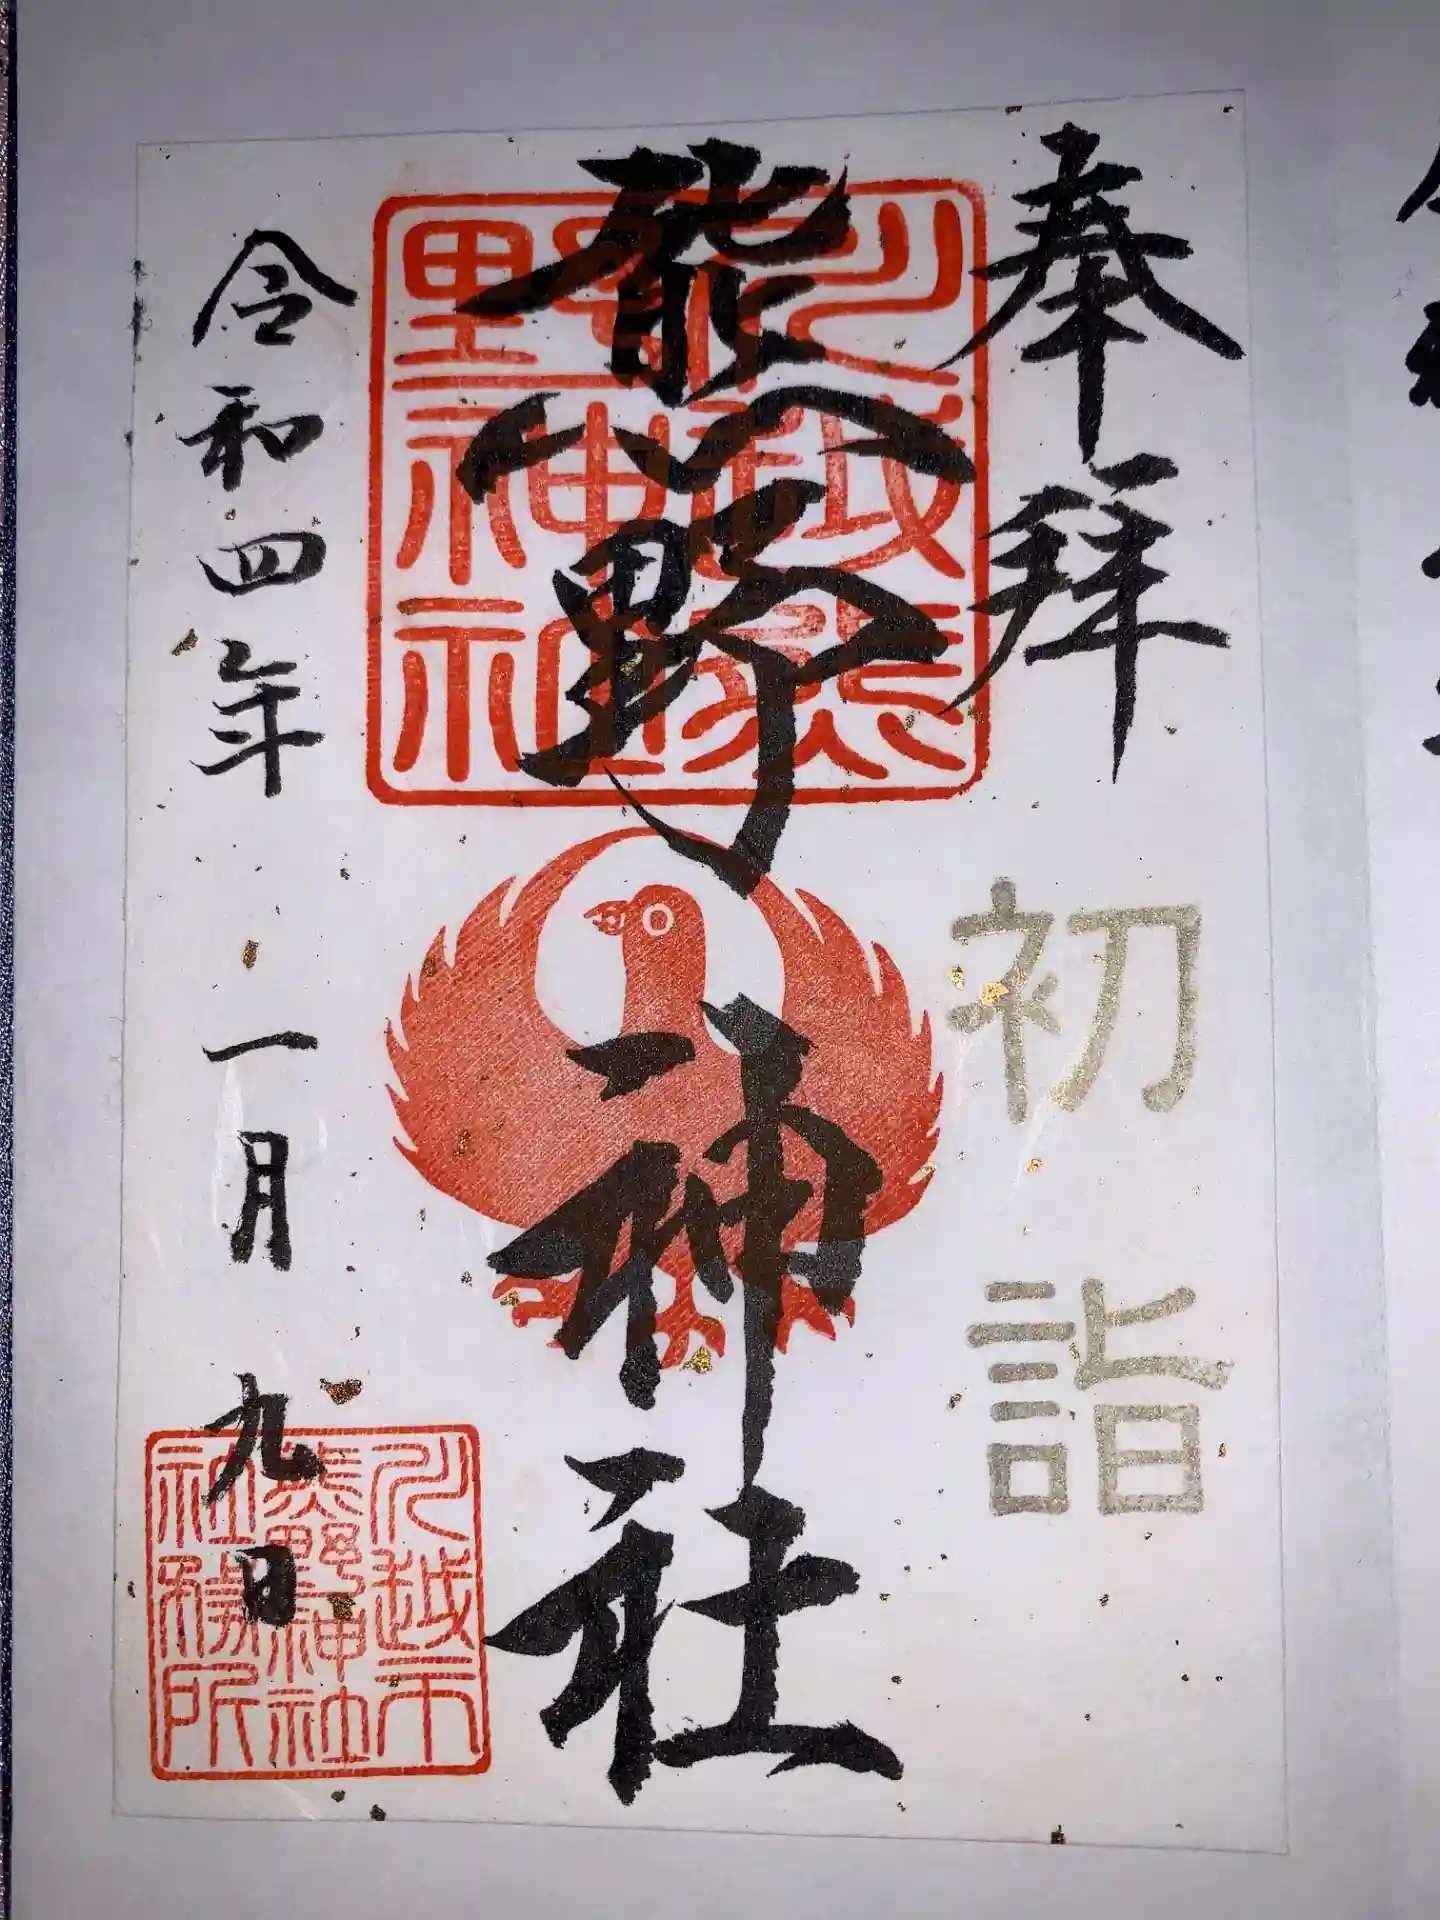 奉拝
初詣
熊野神社
川越熊
野神社
令和四年一月九日
川越市
熊野神社
社務所